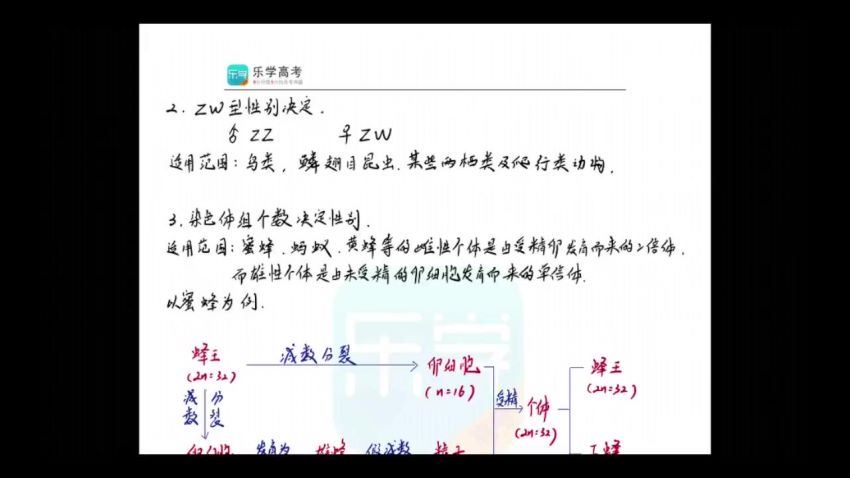 乐学 乐学高考
2. ZW型性别决定.
♂ ZZ ♀ ZW
适用范围: 鸟类, 鳞翅目昆虫. 某些两栖类及爬行类动物.
3. 染色体组个数决定性别.
适用范围: 蜜蜂. 蚂蚁. 黄蜂等的雌性个体是由受精卵发育而来的二倍体.
而雄性个体是由未受精的卵细胞发育而来的单倍体.
以蜜蜂为例.
乐学
蜂王 减数分裂 卵细胞 蜂王
(2n=32) (n=16) 受精 个体 (2n=32)
减数 分裂 (2n=32)
卵细胞 发育为 雄蜂 假减数 精子 工蜂